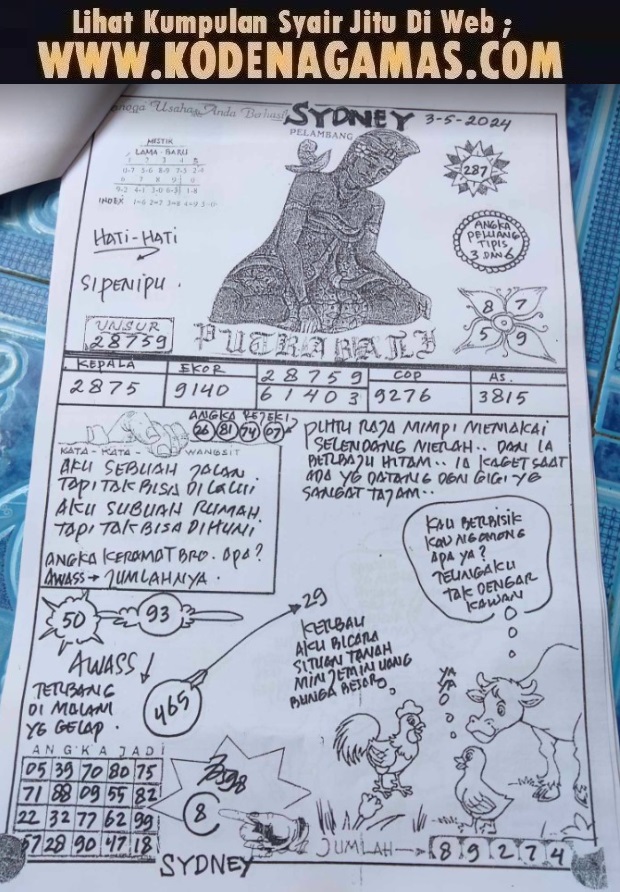 Lihat Kumpulan Syair Jitu Di Web ;
WWW.KODENAGAMAS.COM
Usaha Anda Berhasil
SYDNEY 3-5-2024
PELAMBANG
MISTIK
LAMA - BARU
1 2 3 4 5
0-7 5-6 8-9 7-3 2-4
6 7 8 9 0
9-2 4-1 3-0 6-5 1-8
INDEX 1=6 2=7 3=8 4=9 5=0
287
HATI-HATI
SIPENIPU.
ANGKA
PELUANG
TIPIS
3 DAN 6
8 7
5 9
UNSUR
28759
PUTRA BALI
KEPALA
2875
EKOR
9140
28759
61403
COP
9276
AS.
3815
ANGKA REJEKI
26 81 74 07
KATA - KATA - WANGSIT
AKU SEBUAH JALAN
TAPI TAK BISA DILALUI
AKU SUBUAH RUMAH.
TAPI TAK BISA DIHUNI
ANGKA KERAMAT BRO. APA?
AWASS → JUMLAHNYA.
PUTRI RAJA MIMPI MEMAKAI
SELENDANG MERAH.. DAN IA
BERBAJU HITAM.. IA KAGET SAAT
ADA YG DATANG DGN GIGI YG
SANGAT TAJAM..
KAU BERBISIK
KAU NGOMONG
APA YA?
TELINGAKU
TAK DENGAR
KAWAN
50
93
29
465
AWASS!
TERBANG
DI MALAM
YG GELAP.
KERBAU
AKU BICARA
SITUAN TANAH
MINJEMIN UANG
BUNGA BESAR
YA
YA
ANGKA JADI
05 39 70 80 75
71 88 09 55 82
22 32 77 62 99
57 28 90 47 18
8
SYDNEY
JUMLAH → 8 9 2 7 4